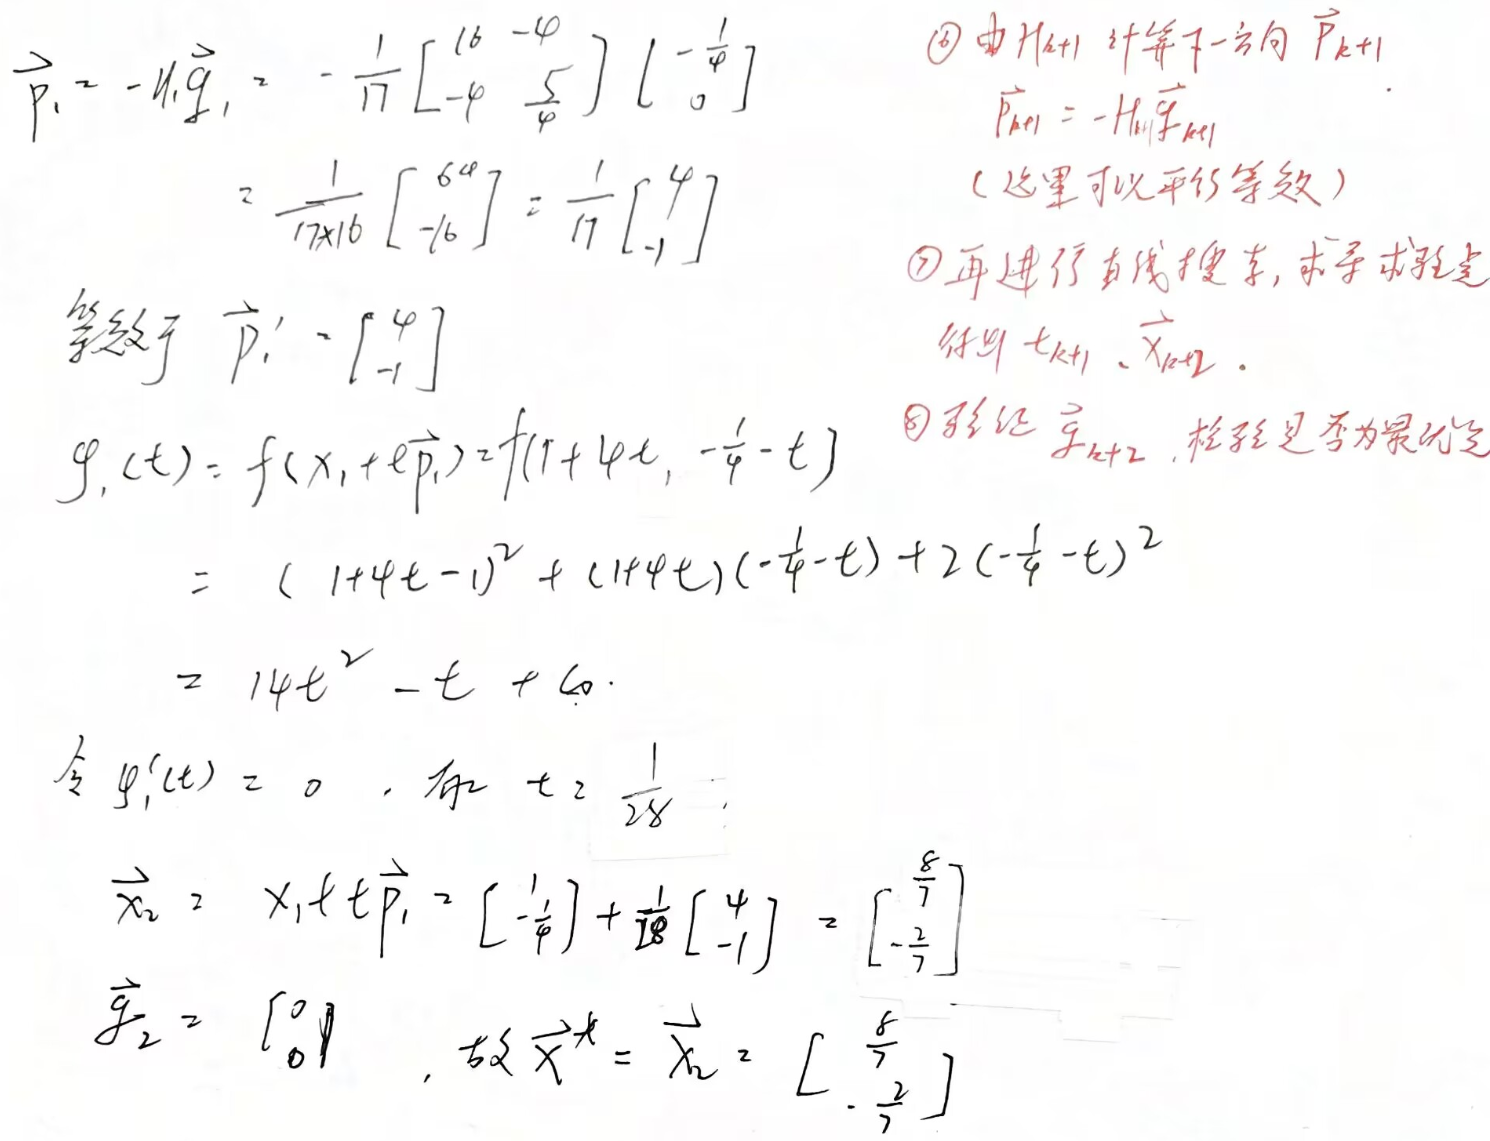 $\vec{p}_1 = -H_1\vec{g}_1 = -\frac{1}{17}\begin{bmatrix} 16 & -4 \\ -4 & \frac{5}{4} \end{bmatrix}\begin{bmatrix} -\frac{1}{4} \\ 0 \end{bmatrix}$
$= \frac{1}{17\times16}\begin{bmatrix} 64 \\ -16 \end{bmatrix} = \frac{1}{17}\begin{bmatrix} 4 \\ -1 \end{bmatrix}$
等效于 $\vec{p}_1' = \begin{bmatrix} 4 \\ -1 \end{bmatrix}$
$\varphi_1(t) = f(x_1+t\vec{p}_1) = f(1+4t, -\frac{1}{4}-t)$
$= (1+4t-1)^2 + (1+4t)(-\frac{1}{4}-t) + 2(-\frac{1}{4}-t)^2$
$= 14t^2 - t + C_0.$
令 $\varphi_1'(t) = 0$ . 解 $t = \frac{1}{28}$.
$\vec{x}_2 = x_1+t\vec{p}_1 = \begin{bmatrix} 1 \\ -\frac{1}{4} \end{bmatrix} + \frac{1}{28}\begin{bmatrix} 4 \\ -1 \end{bmatrix} = \begin{bmatrix} \frac{8}{7} \\ -\frac{2}{7} \end{bmatrix}$
$\vec{g}_2 = \begin{bmatrix} 0 \\ 0 \end{bmatrix}$ , 故 $\vec{x}^* = \vec{x}_2 = \begin{bmatrix} \frac{8}{7} \\ -\frac{2}{7} \end{bmatrix}$
⑥ 由 $H_{k+1}$ 计算下一方向 $\vec{p}_{k+1}$
$\vec{p}_{k+1} = -H_{k+1}\vec{g}_{k+1}$
(这里可以平行等效)
⑦ 再进行直线搜索, 求导求驻点
得出 $t_{k+1}$、$\vec{x}_{k+2}$.
⑧ 验证 $\vec{g}_{k+2}$, 检验是否为最优点